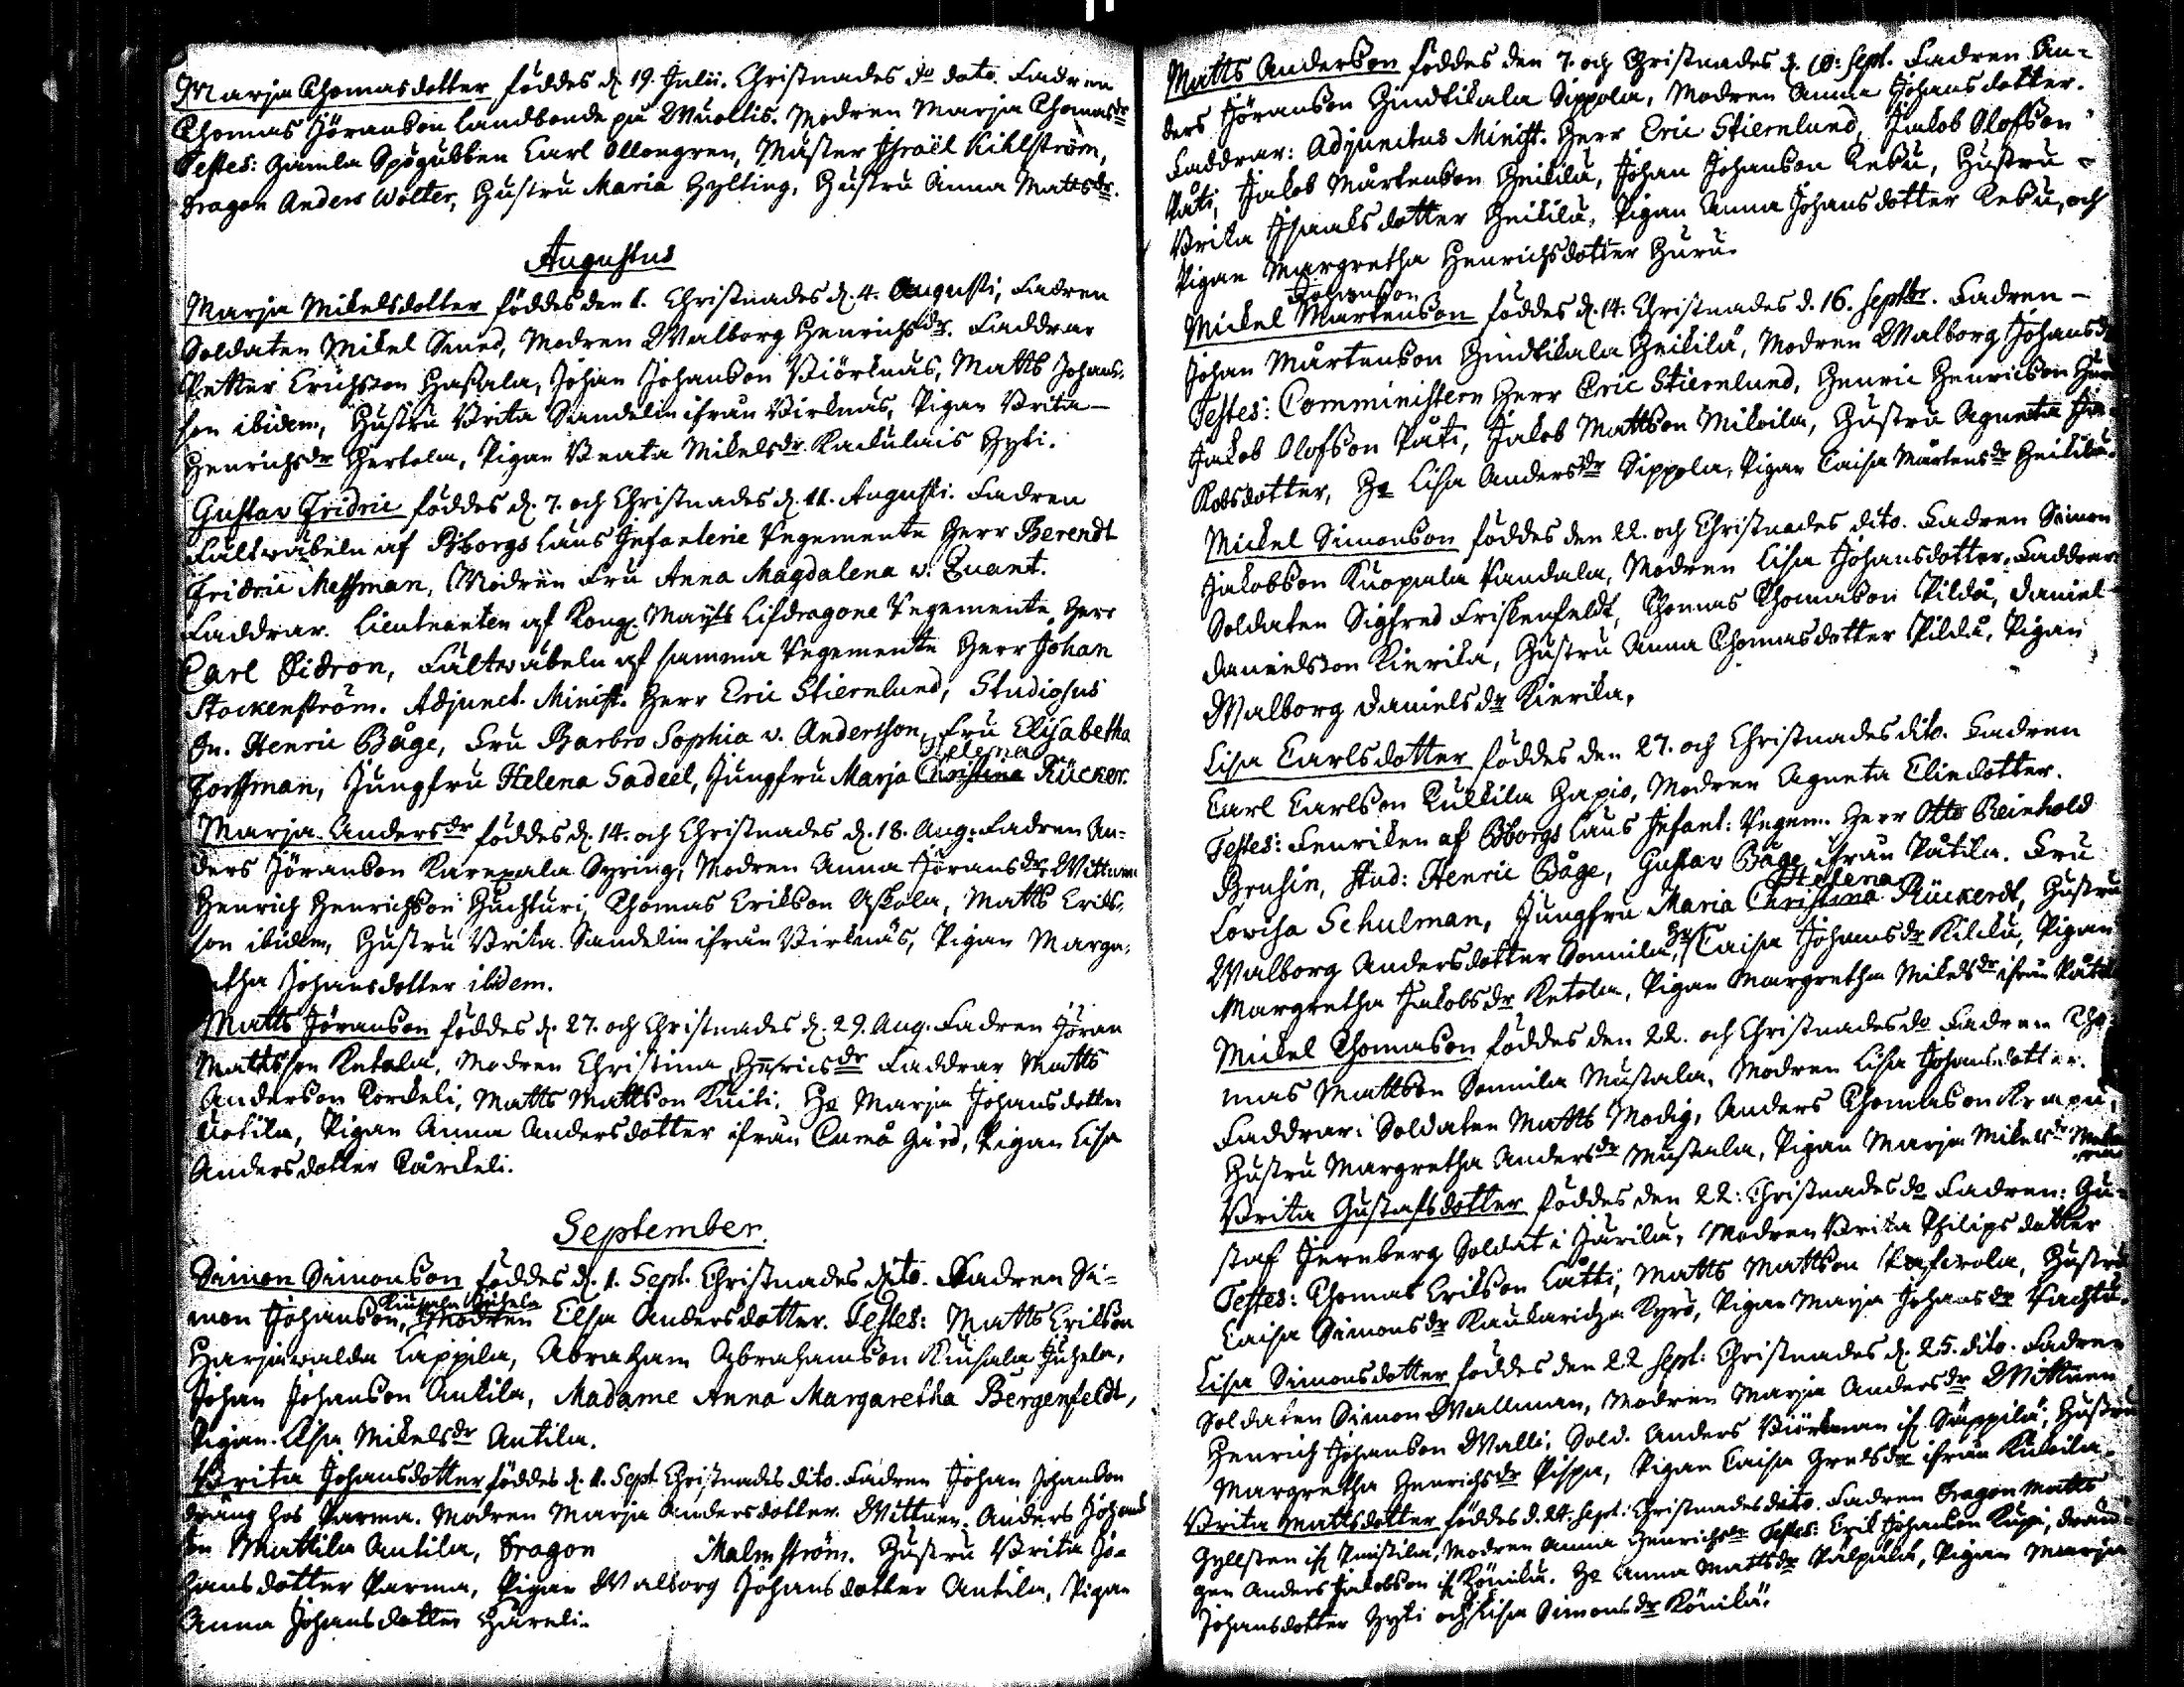 Marja Thomasdotter föddes d. 19. Julii. Christnades do dato. Fadren
Thomas Jöranson Landbonde på Muoltis. Modren Marja Thomasdr
Testes: Gamla Spögubben Carl Ollongren, Mäster Israël Kihlström,
Dragon Anders Wolter, Hustru Maria Hylting, Hustru Anna Mattsdr.
Augustus
Marja Mikelsdotter föddes den 1. Christnades d. 4. Augusti, Fadren
Soldaten Mikel Smed, Modren Walborg Henrichsdr. Faddrar
Petter Erichson Hassala, Johan Johanson Biörknäs, Matts Johan-
son ibidem, Hustru Brita Sandelin ifrån Birknäs, Pigan Brita
Henrichsdr Hertola, Pigan Beata Mikelsdr Kaukulais Hyti.
Gustav Fridric föddes d. 7. och Christnades d. 11. Augusti. Fadren
Fältwäbeln af Biborgs Läns Infanterie Regemente Herr Berendt
Fridric Messman, Modren Fru Anna Magdalena v. Quant.
Faddrar. Lieutnanten af Kong. Mayts Lifdragone Regemente Herr
Carl Didron, Fältwäbeln af samma Regemente Herr Johan
Stockenström. Adjunct. Minist. Herr Eric Stiernlund, Studiosus
Dn. Henric Båge, Fru Barbro Sophia v. Anderthson, Fru Elisabetha
Helena
Forssman, Jungfru Helena Sadeel, Jungfru Marja Christina Rücker.
Marja Andersdr föddes d. 14. och Christnades d. 18. Aug. Fadren An-
ders Jöranson Karepala Syring, Modren Anna Jöransdr, Wittnen
Henrich Henrichson Huchturi, Thomas Erikson Askola, Matts Eriks-
son ibidem, Hustru Brita Sandelin ifrån Birknäs, Pigan Marga-
etha Johansdotter ibidem.
Matts Jöranson föddes d. 27. och Christnades d. 29. Aug. Fadren Jöran
Mattsson Ketola, Modren Christina Henricsdr Faddrar Matts
Anderson Torkeli, Matts Mattson Knuti. Ha Marja Johansdotter
Uotila, Pigan Anna Andersdotter ifrån Cumo Gård, Pigan Lisa
Andersdotter Torckeli.
September.
Simon Simonson föddes d. 1. Sept. Christnades dito. Fadren Si-
Kiusala Juhela
mon Johanson, Modren Elsa Andersdotter. Testes: Matts Erikson
Harjawalda Lappila, Abraham Abrahamson Kiusala Juhela,
Johan Johanson Antila, Madame Anna Margaretha Bergenfeldt,
Pigan Lisa Mikelsdr Antila.
Brita Johansdotter föddes d. 1. Sept Christnades dito. Fadren Johan Johanson
dräng hos Parma. Modren Marja Andersdotter. Wittnen. Anders Johan
son Mattila Antila, Dragon Malmström. Hustru Brita Jo-
hansdotter Parma, Pigan Walborg Johansdotter Antila, Pigan
Anna Johansdotter Häreli.
Matts Anderson föddes den 7. och Christnades d. 10. Sept. Fadren An-
ders Jöranson Hindtikala Sippola, Modren Anna Johansdotter.
Faddrar: Adjunctus Minist. Herr Eric Stiernlund, Jakob Olofson
Päti, Jakob Mårtenson Heikilä, Johan Johanson Rekü, Hustru
Brita Isaaksdotter Heikilä, Pigan Anna Johansdotter Rekü, och
Pigan Margretha Henrichsdotter Huru.
Johanson
Mickel Mårtenson föddes d. 14. Christnades d. 16. Septbr. Fadren
Johan Mårtenson Hindtikala Heikilä, Modren Walborg Johansdr
Testes: Comministern Herr Eric Stiernlund, Henric Henricson Huru
Jakob Olofson Päti, Jakob Mattson Mikoila, Hustru Agneta Ja-
kobsdotter, Ha Lisa Andersdr Sippola, Pigan Caisa Mårtensdr Heikilä.
Mickel Simonson föddes den 22. och Christnades dito. Fadren Simon
Jakobson Kuopala Pandala, Modren Lisa Johansdotter. Faddrar
Soldaten Sigfred Friskenfeldt, Thomas Thomason Pildä, Daniel
Danielson Kierika, Hustru Anna Thomasdotter Pildä, Pigan
Walborg Danielsdr Kierika.
Lisa Carlsdotter föddes den 27. och Christnades dito. Fadren
Carl Carlson Tulkila Hapio, Modren Agneta Eliedotter.
Testes: Fenriken af Biborgs Läns Infant: Regem. Herr Otto Reinhold
Brusin, Stud: Henric Båge, Gustav Båge ifrån Pätila. Fru
Helena
Lovisa Schulman, Jungfru Maria Christina Rückerdt, Hustru
Walborg Andersdotter Sonnila, Ha Caisa Johansdr Kilkü, Pigan
Margretha Jakobsdr Ketola, Pigan Margretha Mikelsdr ifrån Pätil
Mickel Thomason föddes den 22. och Christnades do Fadren Tho-
mas Mattson Sonnila Mustala, Modren Lisa Johansdotter.
Faddrar: Soldaten Matts Modig, Anders Thomason Krapu,
Hustru Margretha Andersdr Mustala, Pigan Marja Mikelsdr
Brita Gustafsdotter föddes den 22: Christnades do Fadren: Gu-
staf Jernberg Soldat i Järilä, Modren Brita Philipsdotter
Testes: Thomas Erikson Lätti, Matts Mattson Paferola, Hustru
Caisa Simonsdr Kaukaritza Kyrö, Pigan Marja Johansdr Rachtu.
Lisa Simonsdotter föddes den 22 Sept: Christnades d. 25. dito. Fadren
Soldaten Simon Wallman, Modren Marja Andersdr Wittnen
Henrich Johanson Walli, Sold. Anders Biörkman if. Säppilä, Hustru
Margretha Henrichsdr Pispa, Pigan Caisa Gredsdr ifrån Kukoila.
Brita Mattsdotter föddes d. 24. Sept. Christnades dito. Fadren Dragon Matts
Gyllsten if. Anistila, Modren Anna Henrichsdr Testes: Erik Johanson Kupi, Dra-
gon Anders Jakobson if. Könilä. Ha Anna Mattsdr Palpala, Pigan Marja
Johansdotter Hyti och Lisa Simonsdr Könilä.